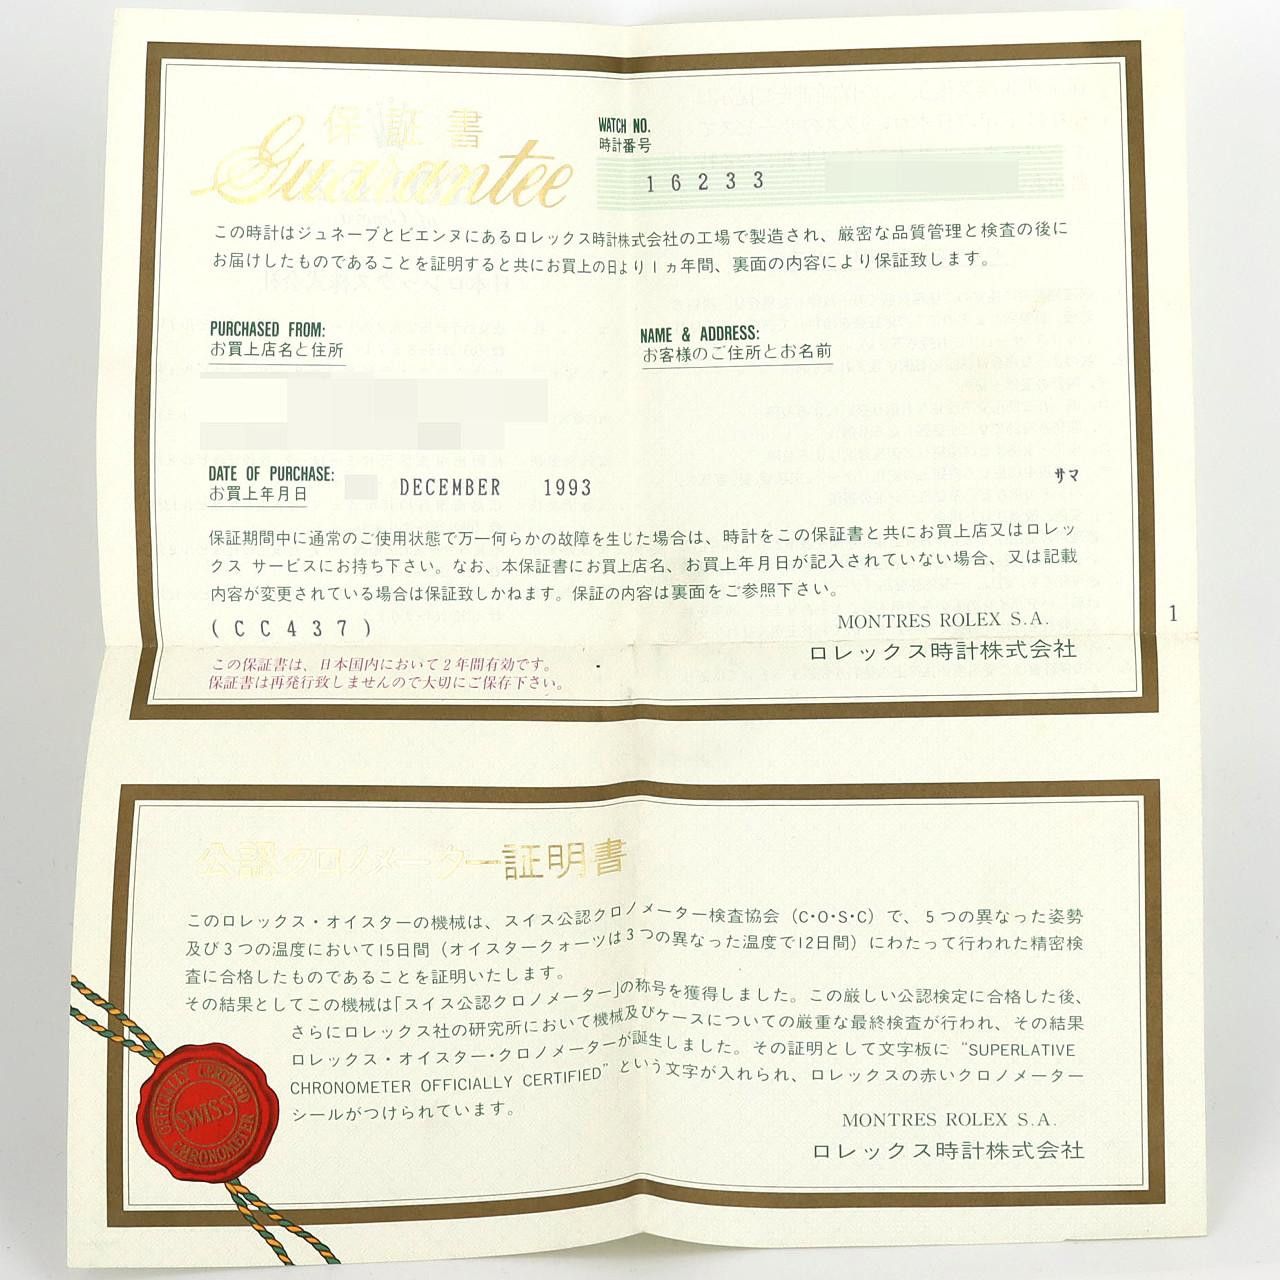 保証書
Guarantee
WATCH NO.
時計番号
16233
この時計はジュネーブとビエンヌにあるロレックス時計株式会社の工場で製造され、厳密な品質管理と検査の後に
お届けしたものであることを証明すると共にお買上の日より1ヵ年間、裏面の内容により保証致します。
PURCHASED FROM:
お買上店名と住所
NAME & ADDRESS:
お客様のご住所とお名前
DATE OF PURCHASE:
お買上年月日
DECEMBER 1993
サマ
保証期間中に通常のご使用状態で万一何らかの故障を生じた場合は、時計をこの保証書と共にお買上店又はロレッ
クス サービスにお持ち下さい。なお、本保証書にお買上店名、お買上年月日が記入されていない場合、又は記載
内容が変更されている場合は保証致しかねます。保証の内容は裏面をご参照下さい。
(CC437)
MONTRES ROLEX S.A.
ロレックス時計株式会社
1
この保証書は、日本国内において2年間有効です。
保証書は再発行致しませんので大切にご保存下さい。
公認クロノメーター証明書
このロレックス・オイスターの機械は、スイス公認クロノメーター検査協会（C・O・S・C）で、5つの異なった姿勢
及び3つの温度において15日間（オイスタークォーツは3つの異なった温度で12日間）にわたって行われた精密検
査に合格したものであることを証明いたします。
その結果としてこの機械は「スイス公認クロノメーター」の称号を獲得しました。この厳しい公認検定に合格した後、
さらにロレックス社の研究所において機械及びケースについての厳重な最終検査が行われ、その結果
ロレックス・オイスター・クロノメーターが誕生しました。その証明として文字板に “SUPERLATIVE
CHRONOMETER OFFICIALLY CERTIFIED” という文字が入れられ、ロレックスの赤いクロノメーター
シールがつけられています。
OFFICIALLY CERTIFIED
SWISS
CHRONOMETER
MONTRES ROLEX S.A.
ロレックス時計株式会社